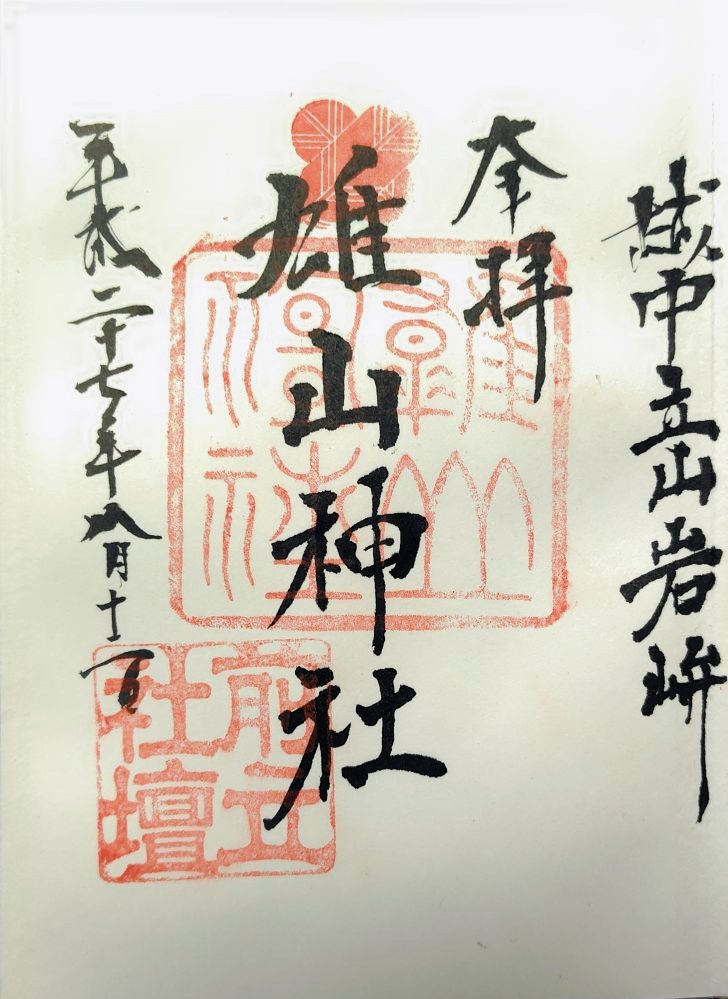 越中立山岩峅
奉拝
雄山神社
雄山神社
前立社壇
平成二十七年八月十日